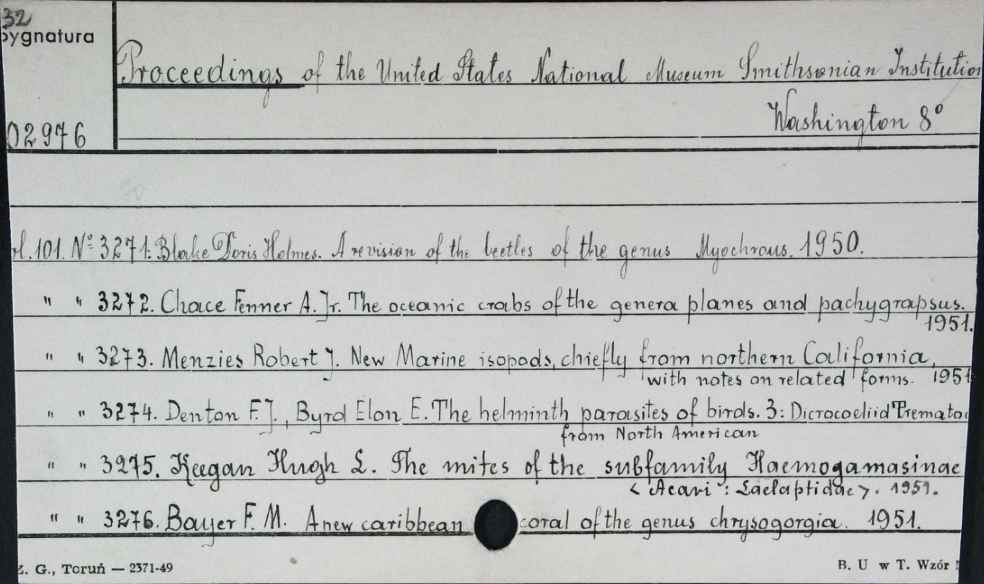 32
Sygnatura
Proceedings of the United States National Museum Smithsonian Institution
Washington 8°
02976
vol. 101. Nº 3271. Blake Doris Holmes. A revision of the beetles of the genus Myochrous. 1950.
" " 3272. Chace Fenner A. Jr. The oceanic crabs of the genera planes and pachygrapsus.
1951.
" " 3273. Menzies Robert J. New Marine isopods, chiefly from northern California,
with notes on related forms. 1951
" " 3274. Denton F. J., Byrd Elon E. The helminth parasites of birds. 3: Dicrocoeliid Tremato
from North American
" " 3275. Keegan Hugh L. The mites of the subfamily Haemogamasinae
< Acari : Laelaptidae >. 1951.
" " 3276. Bayer F. M. A new caribbean coral of the genus chrysogorgia. 1951.
Z. G., Toruń — 2371-49
B. U w T. Wzór